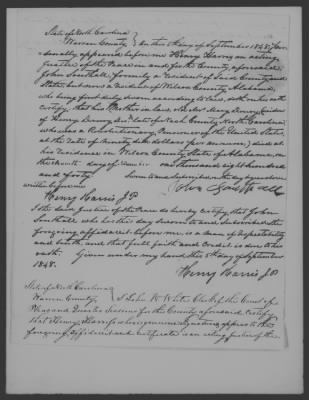 State of North Carolina
Warren County } On this 5th day of September 1848, per-
sonally appeared before me Henry Harris an acting
Justice of the Peace in and for the County aforesaid
John Southall, formerly a resident of said County and
State, but now a resident of Wilcox County Alabama,
who being first duly sworn according to law, doth on his oath
certify that his Mother in law, Mrs. Mary
of Henry late of County North Carolina
who was a Revolutionary Pensioner of the United States
at the rate of dollars per annum, died at
his residence in Wilcox County State of Alabama, on
the day of one thousand eight hundred
and forty Sworn to and subscribed the day & year above
written before me John Southall
Henry Harris J.P.
I the said Justice of the Peace do hereby certify that John
Southall who has this day sworn to and subscribed the
foregoing affidavit before me is a man of respectability
and truth and that full faith and credit is due to his
oath. Given under my hand this 5th day of September
1848.
Henry Harris J.P.
State of North Carolina
Warren County, } I John W. White Clerk of the Court of
Pleas and Quarter Sessions for the County aforesaid certify
that Henry Harris whose genuine signature appears to the
foregoing affidavit and certificate is an acting Justice of the